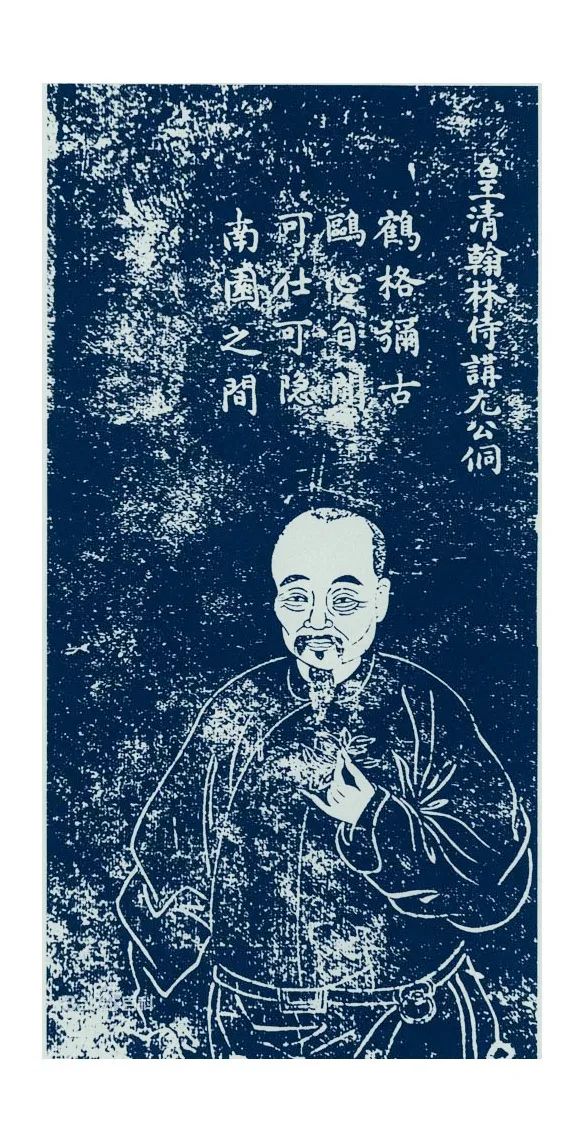 皇清翰林侍講尤公侗
鶴格彌古
鷗心自閒
可仕可隐
南園之間